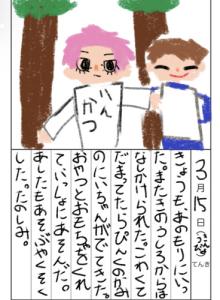 いんかつ
3月15日
てんき
きょうもあのもりにいっ
た。またきのうしろからは
なしかけられた。こわくて
だまってたらぴんくのかみ
のにいちゃんがでてきた。
おやつとおもちゃをくれ
ていっしょにあそんだ。
あしたもあそぶやくそく
した。たのしみ。